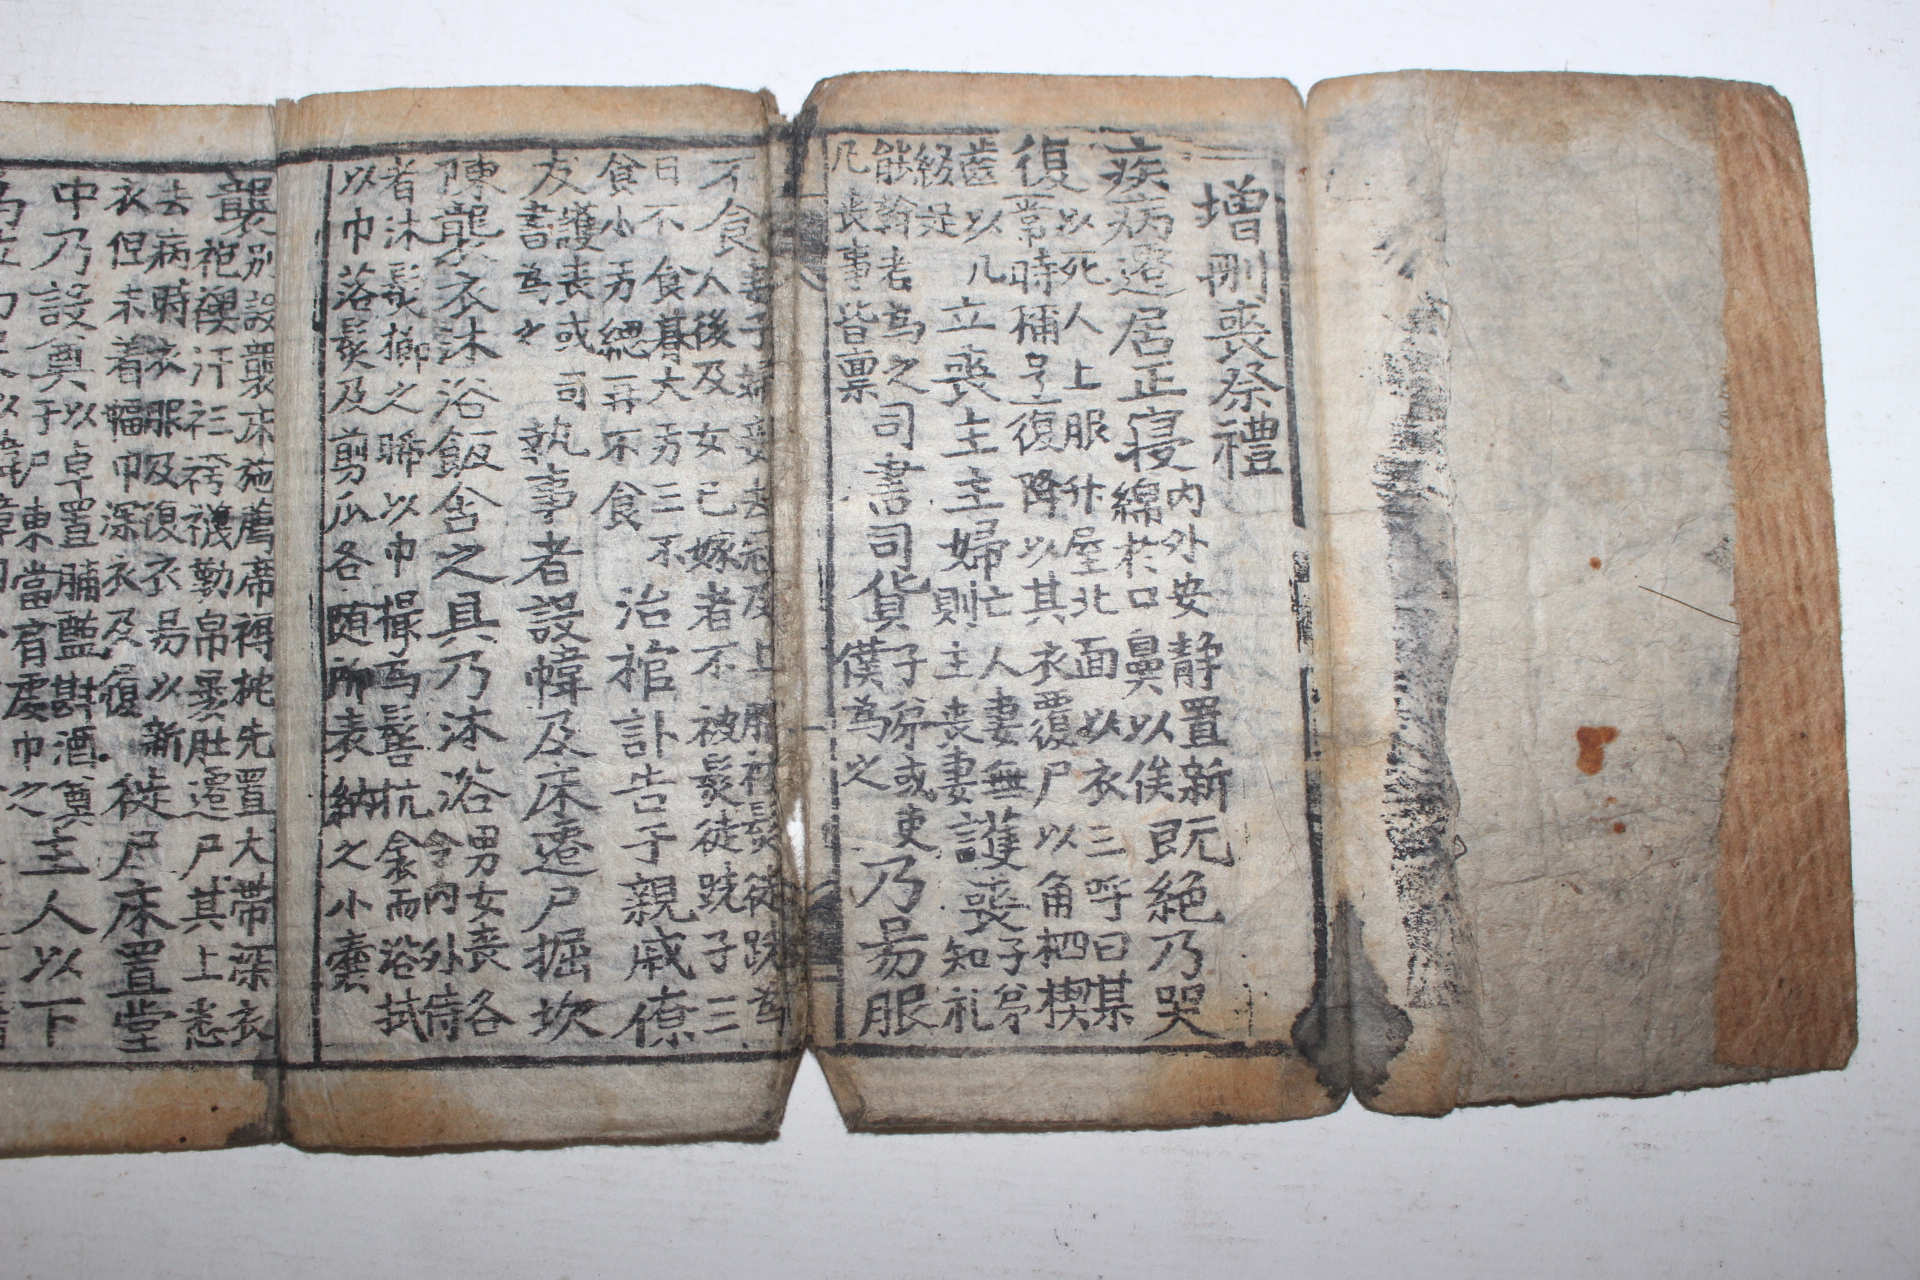 增刪喪祭禮
疾病遷居正寢內外安静置新
綿於口鼻以俟既絶乃哭
復以死人上服升屋北面以衣三呼曰某
常時稱号三復降以其衣覆尸以角柶楔
齒以几
綴足立喪主主婦亡人妻無
則主喪妻護喪子弟知礼
能幹者為之
凡喪事皆禀司書司貨子弟或吏
僕為之乃易服
不食妻子婦妾去冠及上服被髮徒跣為
人後及女已嫁者不被髮徒跣子三
日不食朞大功三不
食小功緦再不食治棺訃告于親戚僚
友護喪或司
書為之執事者設幃及床遷尸掘坎
陳襲衣沐浴飯含之具乃沐浴男女喪各
令内外侍
者沐髮櫛之晞以巾撮為髻抗衾而浴拭
以巾落髮及剪爪各随所表納之小囊
襲别設襲床施薦席褥枕先置大帶深衣
袍襖汗衫袴襪勒帛裹肚遷尸其上悉
去病時衣服及復衣易以新
衣但未着幅巾深衣及復徙尸床置堂
中乃設奠以卓置脯醢斟酒奠
于尸東當肩虞巾之主人以下